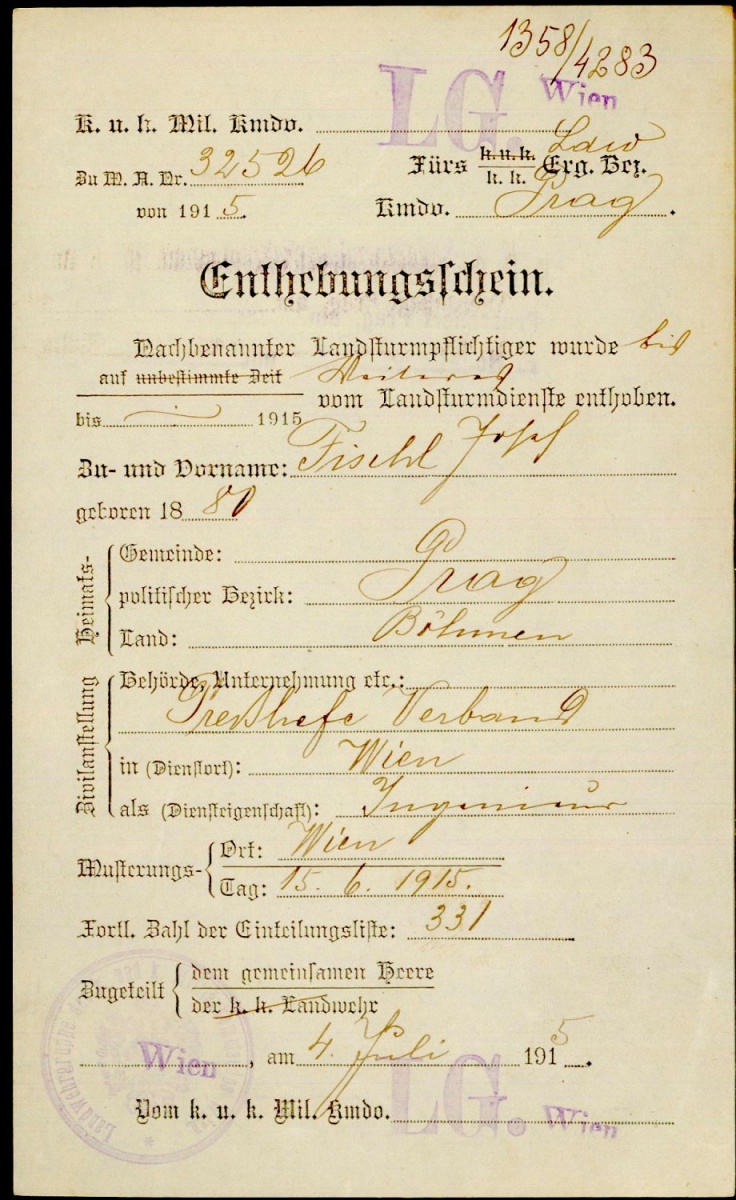 1358/4283
LG. Wien
K. u. k. Mil. Kmdo.
Zu M. A. Nr. 32526
von 1915.
Fürs k. u. k. / k. k. Ldw Erg. Bez.
Kmdo. Prag.
Enthebungsschein.
Nachbenannter Landsturmpflichtiger wurde bis
auf unbestimmte Zeit Weiteres
bis 1915 vom Landsturmdienste enthoben.
Zu- und Vorname: Fischl Josef
geboren 1880
Heimats-
Gemeinde:
politischer Bezirk: Prag
Land: Böhmen
Zivilanstellung
Behörde, Unternehmung etc.:
Presshefe Verband
in (Dienstort): Wien
als (Diensteigenschaft): Ingenieur
Musterungs-
Ort: Wien
Tag: 15. 6. 1915.
Fortl. Zahl der Einteilungsliste: 331
Zugeteilt
dem gemeinsamen Heere
der k. k. Landwehr
Wien, am 4. Juli 1915.
Vom k. u. k. Mil. Kmdo.
LG. Wien